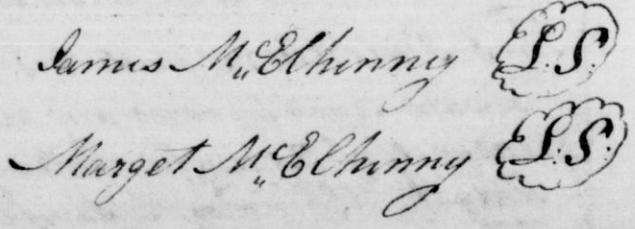 James McElhinney L.S.
Marget McElhinny L.S.